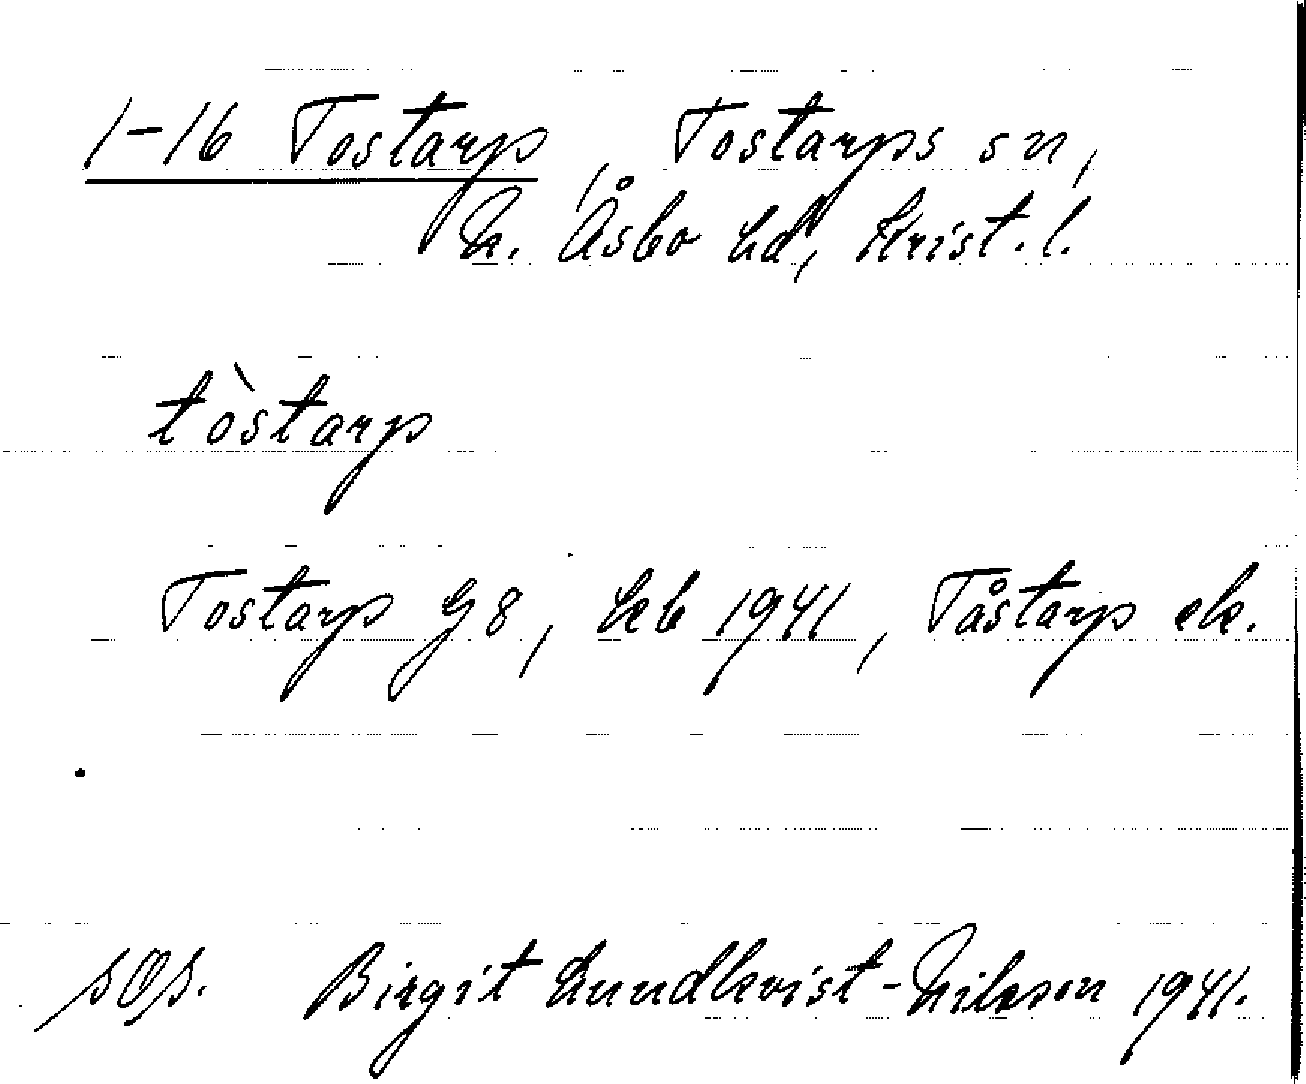 1-16 Tostarp, Tostarps sn,
N. Åsbo hd, Krist. l.
tòstarp
Tostarp G 8, 1941, Tåstarp ek.
sOs. Birgit Lundkvist-Nilsson 1941.